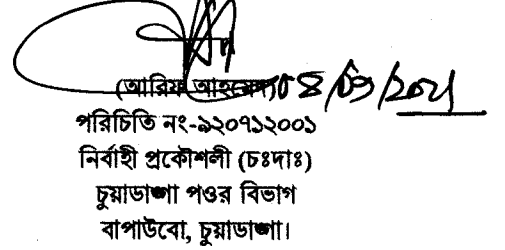 (আরিফ আহমেদ)
পরিচিতি নং-৯২০৭১২০০১
নির্বাহী প্রকৌশলী (চঃদাঃ)
চুয়াডাঙ্গা পওর বিভাগ
বাপাউবো, চুয়াডাঙ্গা।